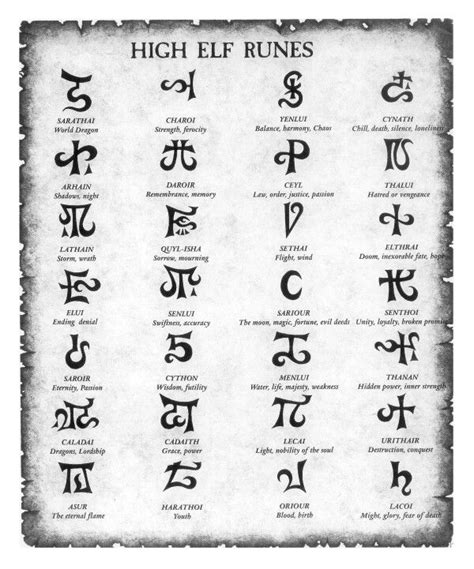 HIGH ELF RUNES
SARATHAI CHAROI YENLUI CYNATH
World Dragon Strength, ferocity Balance, harmony, Chaos Chill, death, silence, loneliness
ARHAIN DAROIR CEYL THALUI
Shadows, night Remembrance, memory Law, order, justice, passion Hatred or vengeance
LATHAIN QUYL-ISHA SETHAI ELTHRAI
Storm, wrath Sorrow, mourning Flight, wind Doom, inexorable fate, hope
ELUI SENLUI SARIOUR SENTHOI
Ending denial Swiftness, accuracy The moon, magic, fortune, evil deeds Unity, loyalty, broken promises
SAROIR CYTHON MENLUI THANAN
Eternity, Passion Wisdom, futility Water, life, majesty, weakness Hidden power, inner strength
CALADAI CADAITH LECAI URITHAIR
Dragons, Lordship Grace, power Light, nobility of the soul Destruction, conquest
ASUR HARATHOI ORIOUR LACOI
The eternal flame Youth Blood, birth Might, glory, fear of death